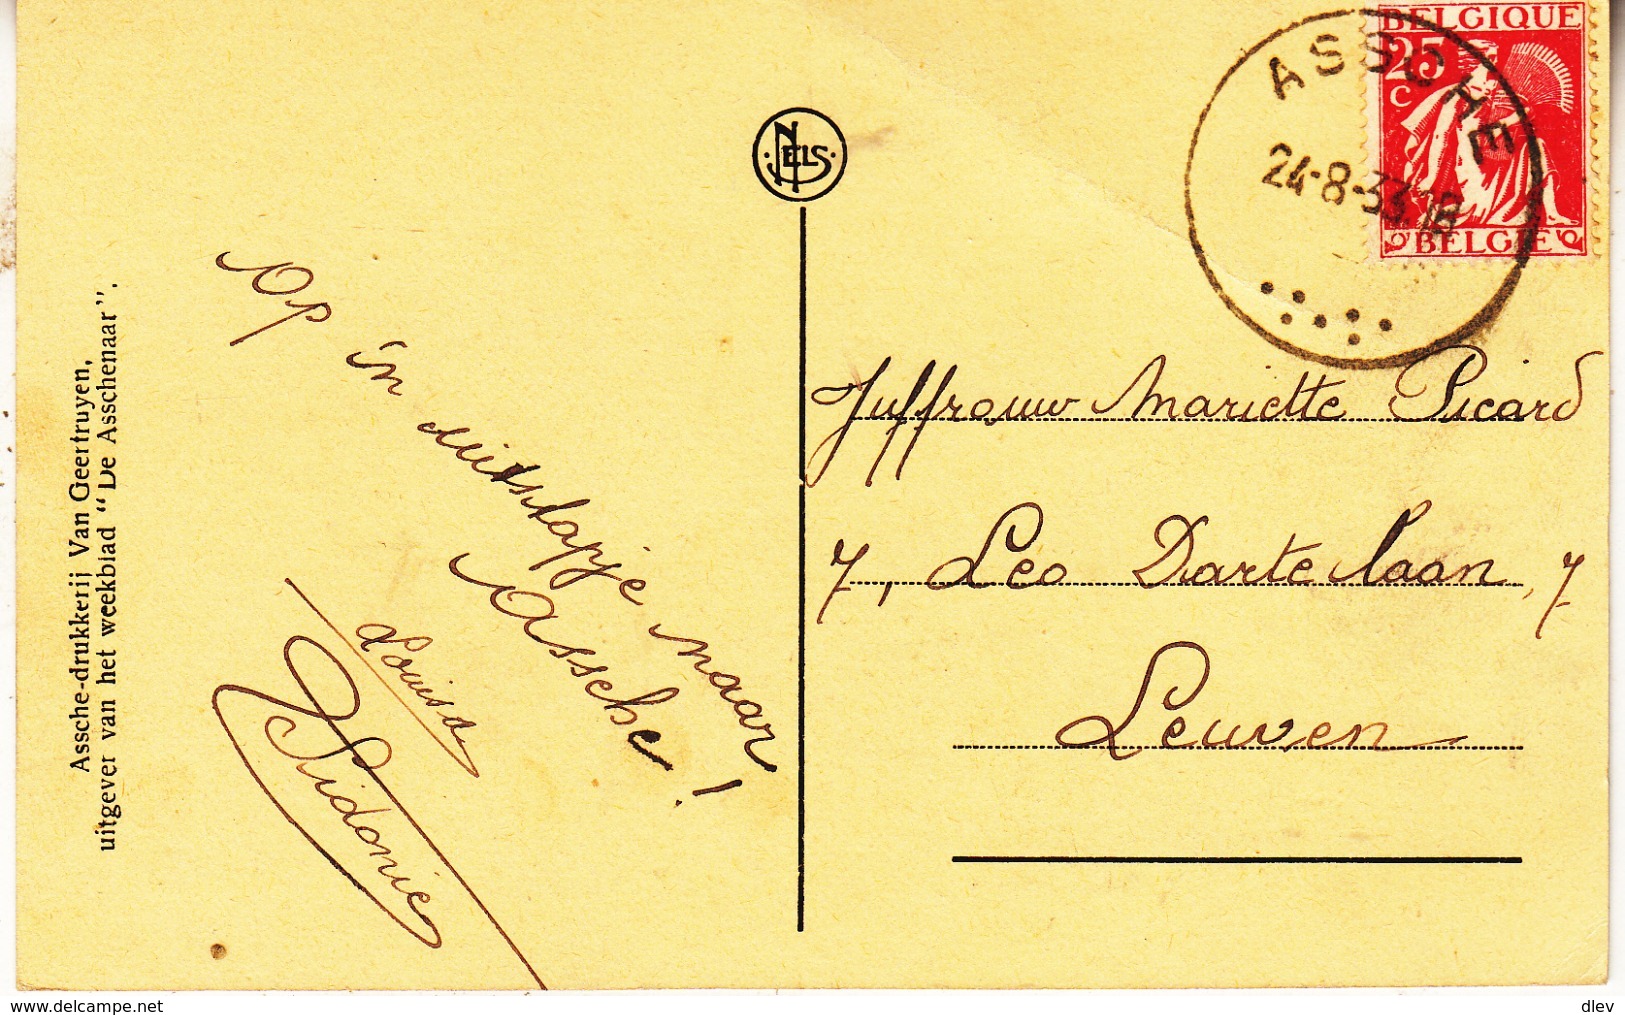 Assche-drukkerij Van Geertruyen,
uitgever van het weekblad "De Asschenaar".
NELS
Op in uitstapje naar
Assche!
Louisa
Sidonie
ASSCHE
24-8-33.18
BELGIQUE
25
C
BELGIE
Juffrouw Mariette Picard
7, Leo Dartelaan, 7
Leuven
www.delcampe.net
dlev